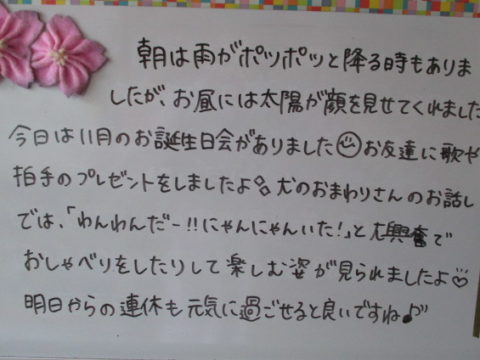 朝は雨がポツポツと降る時もありま
したが、お昼には太陽が顔を見せてくれました
今日は11月のお誕生日会がありました お友達に歌や
拍手のプレゼントをしましたよ。犬のおまわりさんのお話し
では、「わんわんだー!!にゃんにゃんいた!」と大興奮で
おしゃべりをしたりして楽しむ姿が見られましたよ♡
明日からの連休も元気に過ごせると良いですね♪